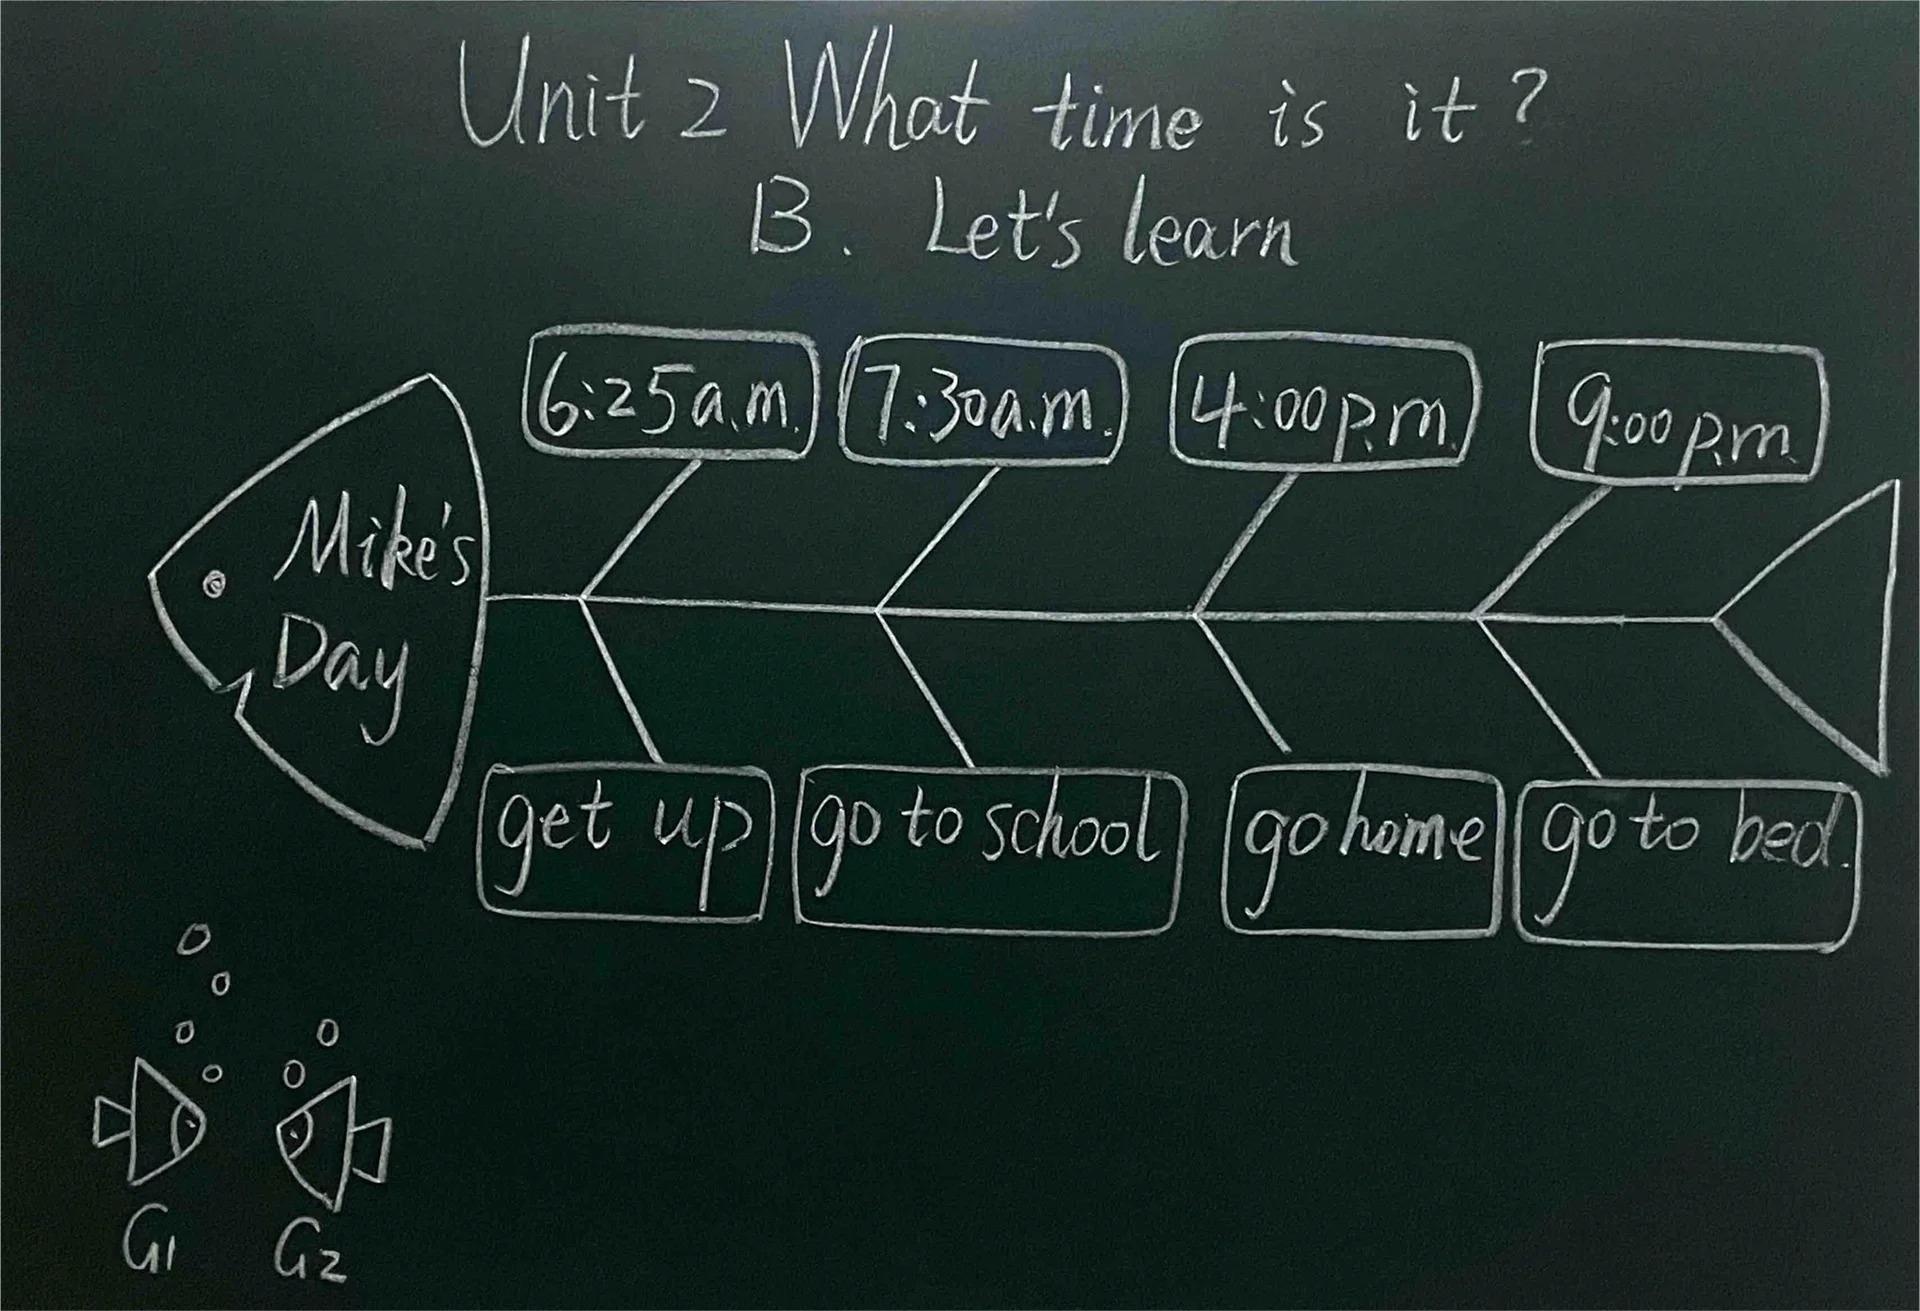 Unit 2 What time is it?
B. Let's learn
6:25a.m. 7:30a.m. 4:00p.m. 9:00p.m.
Mike's
Day
get up go to school go home go to bed.
G1 G2